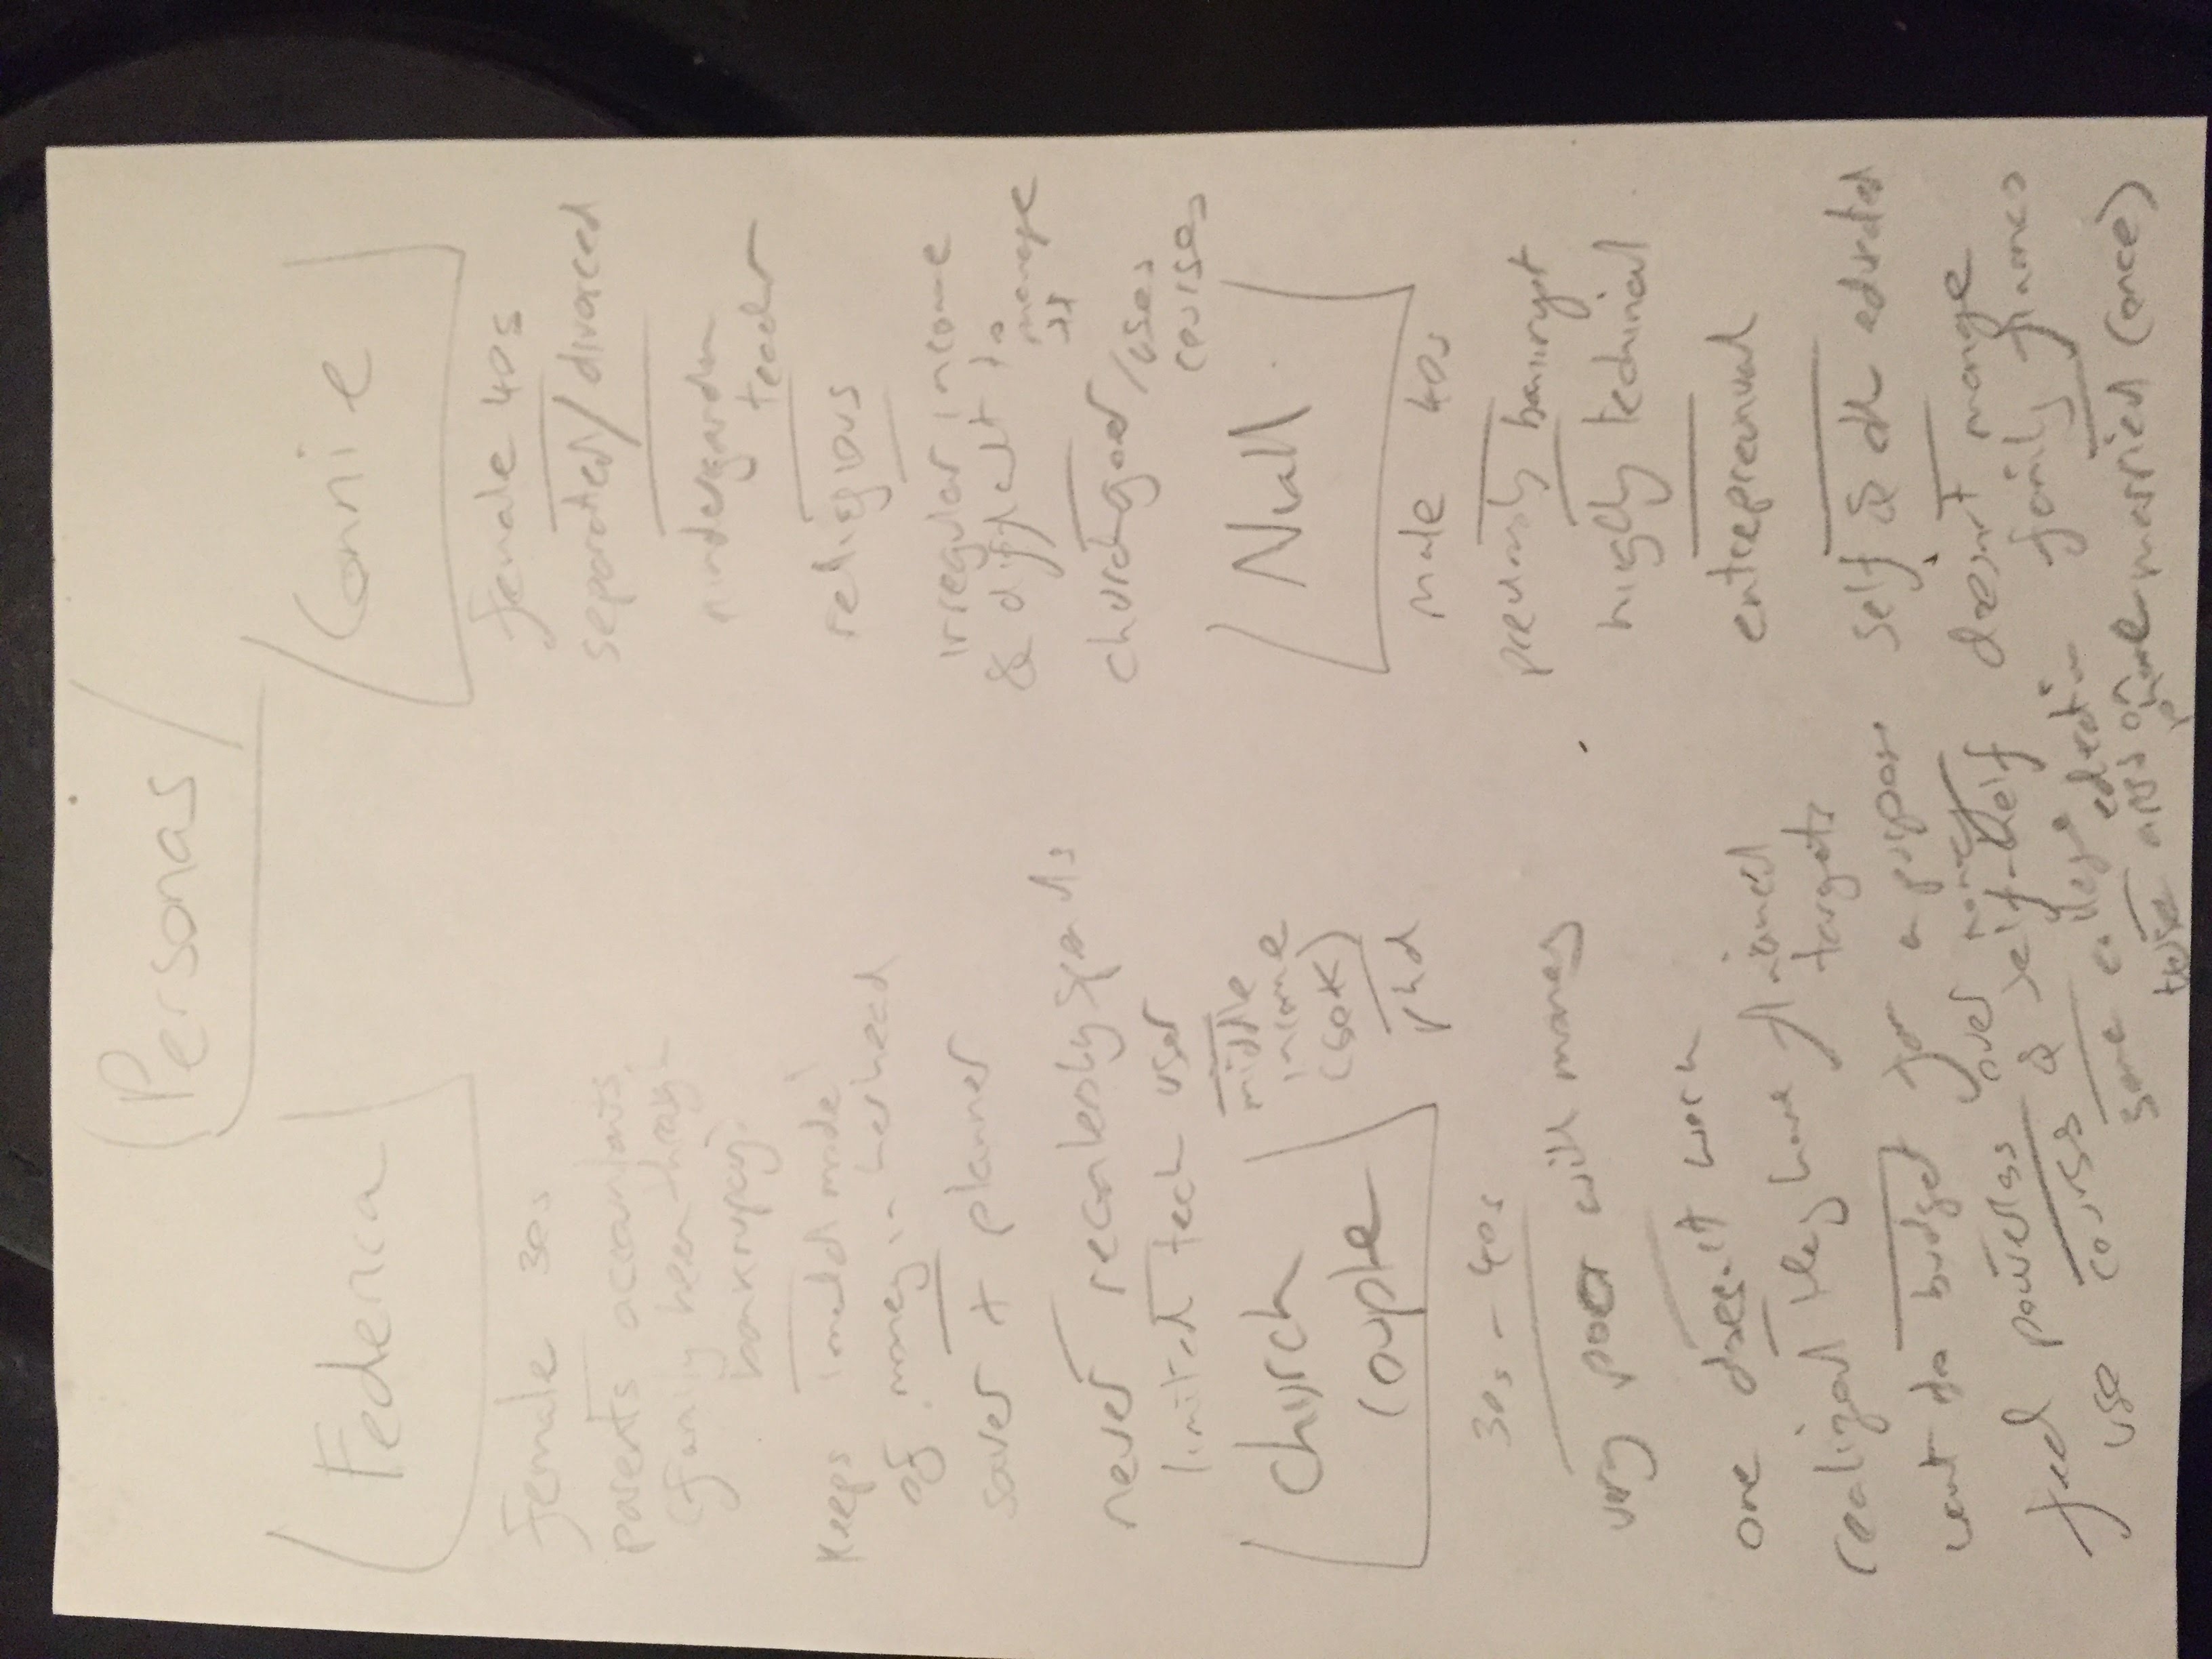 Personas
Federica
Female 30s
parents accountants
(family been through
bankrupcy?
Keeps
of money in her head
saver + planner
never recklessly spends
limited tech user
middle
income
phd
Connie
female 40s
separated/divorced
kindergarden
teacher
religious
irregular income
& difficult to
manage
churchgoer/uses
courses
Church
Couple
30s - 40s
very poor with money
one doesn't work
realized they have financial
targets
want to budget for a purpose
feel powerless over money
use courses & self-help
some college
education
use apps on
phone
Niall
male 40s
previously bankrupt
highly technical
entrepreunual
self & educated
doesn't manage
family finances
married (once)